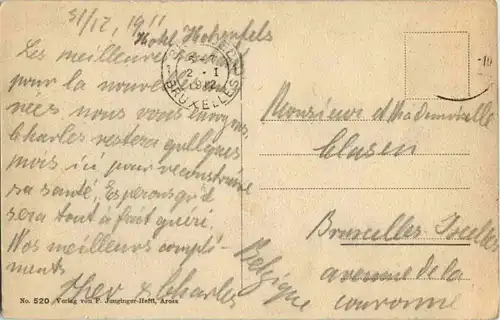 31/12, 1911
Hotel Hohenfels
Les meilleures
pour la nouvelle
nées nous vous envoyons
Charles restera quelques
mois ici pour reconstruire
sa santé. Esperons qu'il
sera tout à fait guéri.
Nos meilleurs compli-
ments
Theo & Charles
No. 520 Verlag von F. Jenginger-Heftt, Arosa
BRUXELLES
2 - I
1912
Monsieur et Mademoiselle
Clasen
Bruxelles Ixelles
avenue de la
couronne
Belgique